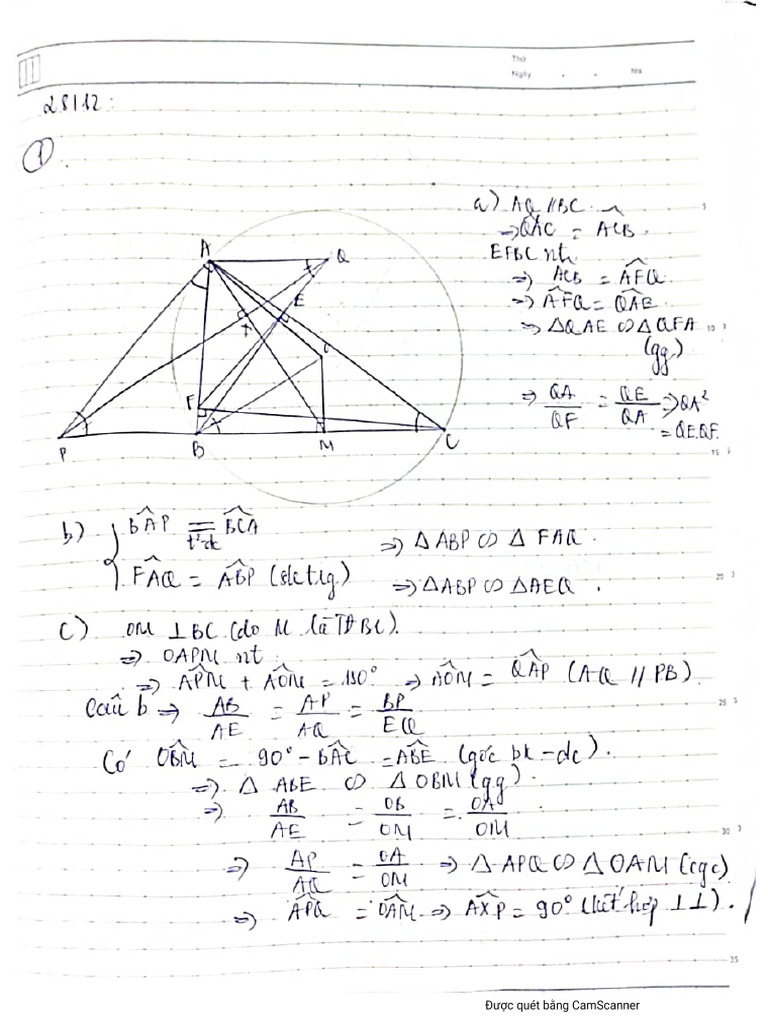 Thứ
Ngày
No
28/12:
①.
a) AQ // BC
⇒ QAC = ACB.
EFBC nt
⇒ ACB = AFQ.
⇒ AFQ = QAE.
⇒ ΔQAE ∽ ΔQFA
(gg)
⇒ QA/QF = QE/QA ⇒ QA²
= QE.QF.
A Q E X O F P B M C
5
10
15
b) { BAP = BCA
t²dc
FAQ = ABP (slctg)
⇒ ΔABP ∽ ΔFAQ.
⇒ ΔABP ∽ ΔAEQ.
20
c) OM ⊥ BC (do M là TĐ BC).
⇒ OAPM nt
⇒ APM + AOM = 180° ⇒ AOM = QAP (AQ // PB)
Câu b ⇒ AB/AE = AP/AQ = BP/EQ
25
Có OBM = 90° - BAC = ABE (góc bk - dc).
⇒ Δ ABE ∽ ΔOBM (gg).
⇒ AB/AE = OB/OM = OA/OM
30
⇒ AP/AQ = OA/OM ⇒ ΔAPQ ∽ ΔOAM (cgc)
⇒ APQ = OAM ⇒ AXP = 90° (kết hợp ⊥⊥).
35
Được quét bằng CamScanner